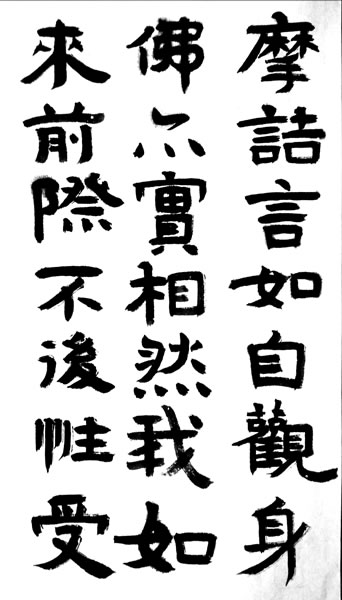 摩詰言如自觀身
佛亦實相然我如
來前際不後惟受